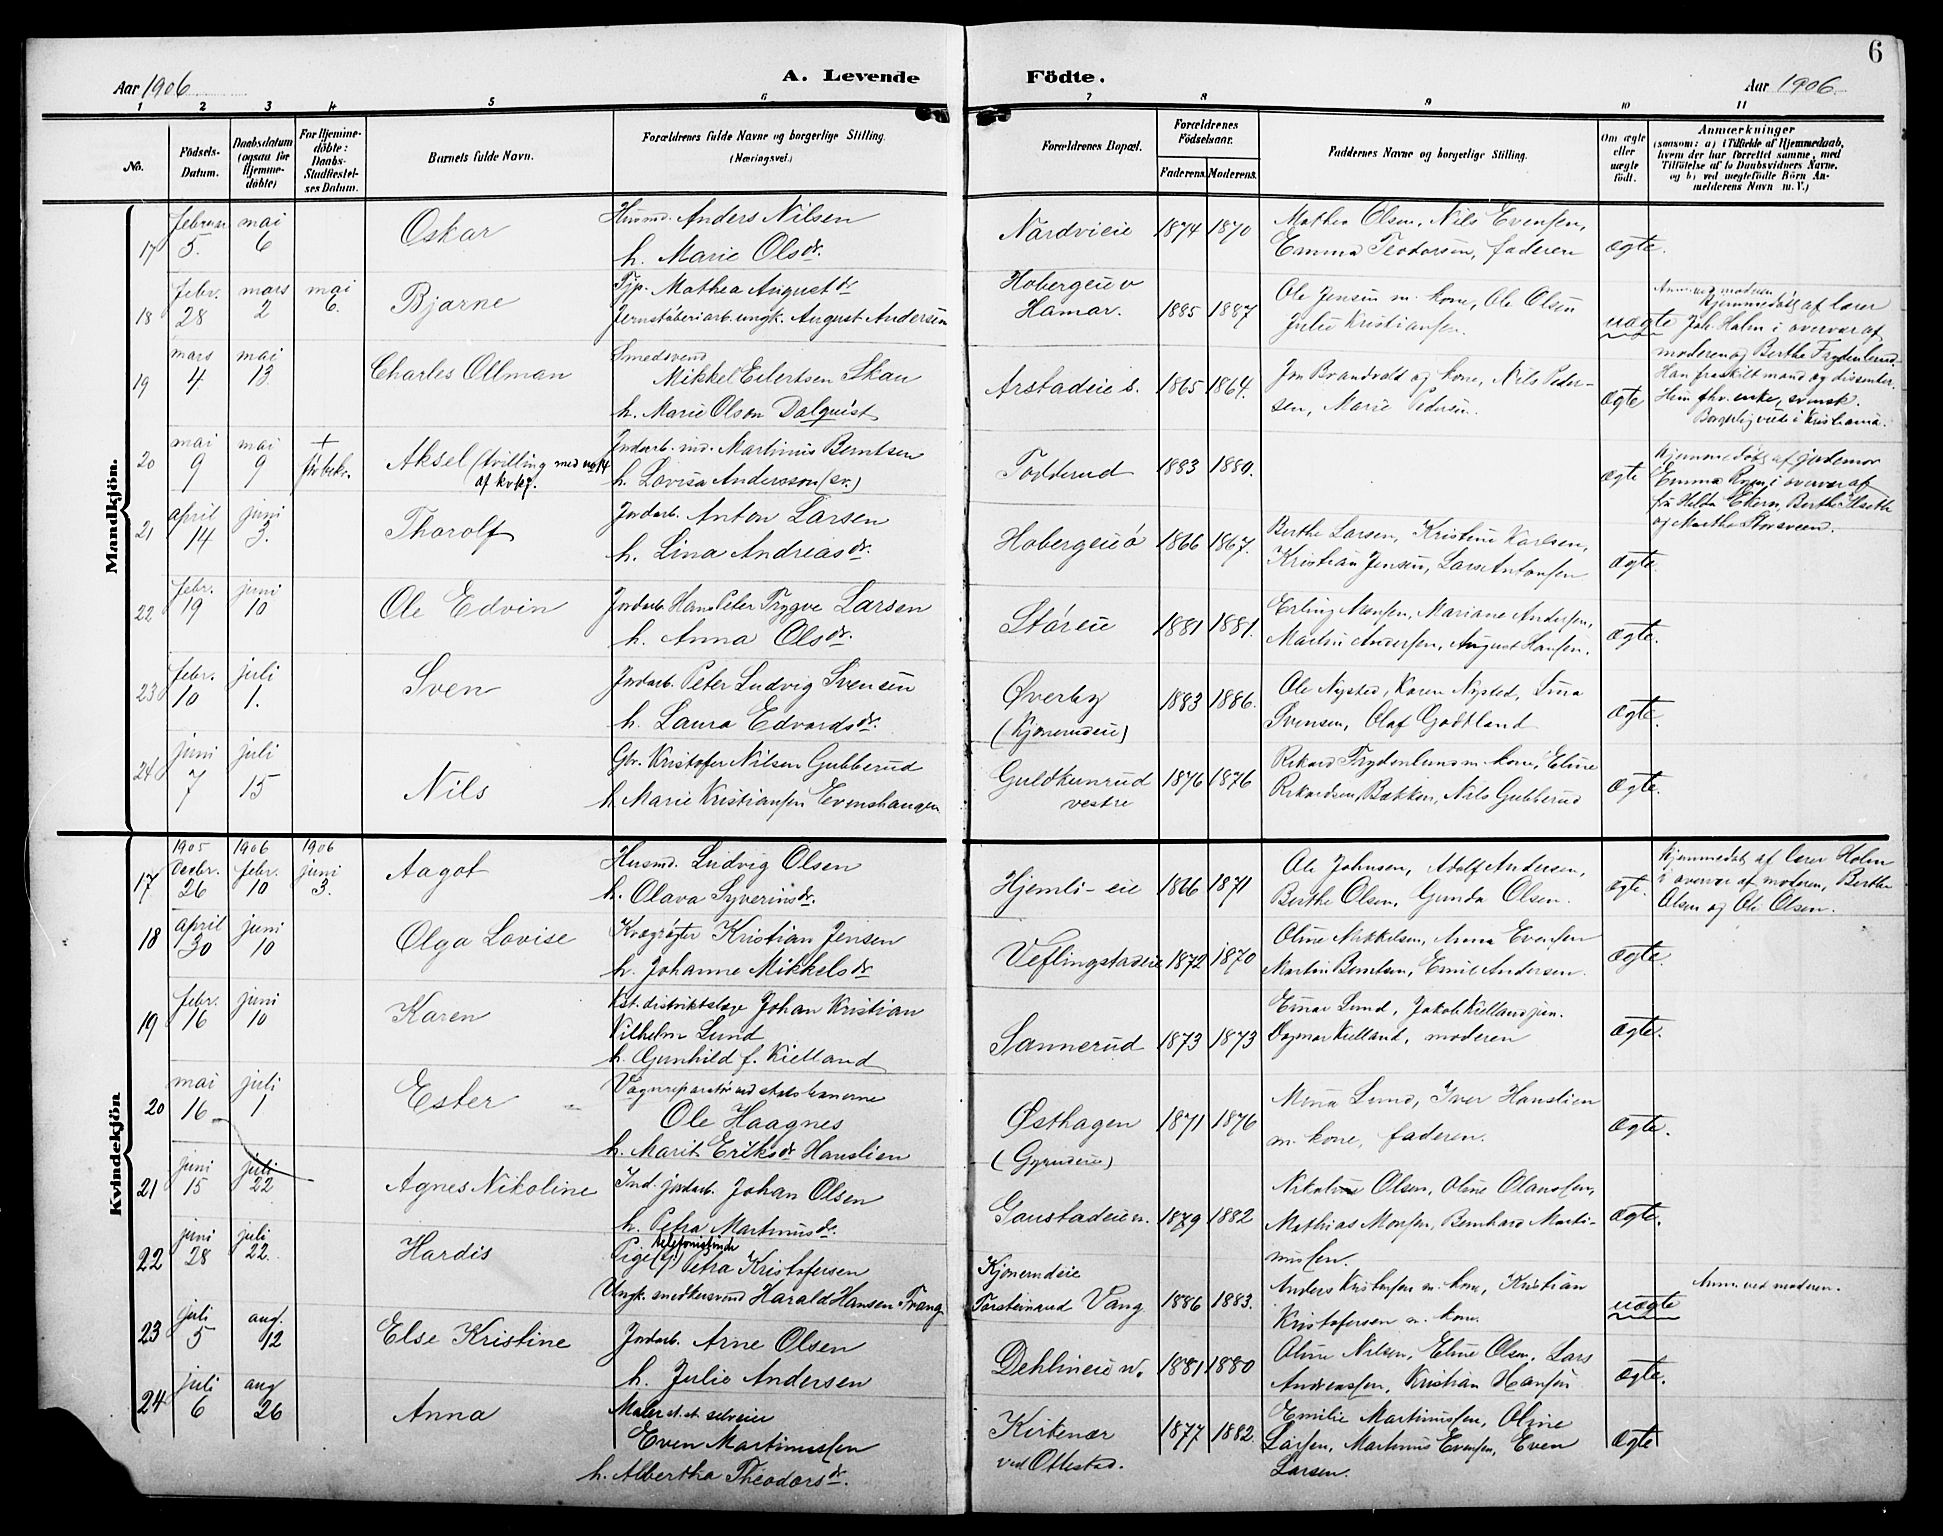 6
Aar 1906
A. Levende
Födte.
Aar 1906
1 2 3 4 5 6 7 8 9 10 11
No.
Födsels-
Datum.
Daabsdatum
(ogsaa for
Hjemme-
döbte)
For Hjemme-
döbte:
Daabs-
Stadfæstel-
ses Datum.
Barnets fulde Navn.
Forældrenes fulde Navne og borgerlige Stilling.
(Næringsvei.)
Forældrenes Bopæl.
Forældrenes
Födselsaar.
Faderens. Moderens.
Faddernes Navne og borgerlige Stilling.
Om ægte
eller
uægte
födt.
Anmærkninger
(saasom: a) i Tilfælde af Hjemmedaab,
hvem der har forrettet samme, med
Tilföielse af to Daabsvidners Navne.
og b) ved uægtefödte Börn An-
melderens Navn m. V.)
Mandkjön.
17 februar 5. mai 6 Oskar
Husmd. Anders Nilsen
h. Marie Olsdr.
Nardvieie 1874 1870
Mathea Olsen, Nils Evensen,
Emma Teodorsen, faderen
ægte.
18 febr. 28 mars 2 mai 6. Bjarne
Tjp. Mathea Augustdr
Jernstøberiarb. ungk. August Andersen
Hobergeie v
Hamar. 1885 1887
Ole Jensen m. kone, Ole Olsen
Julie Kristiansen.
uægte
Anm. ved moderen.
Hjemmedøbt af lærer
Joh. Holm i overvær af
moderen og Berthe Frydenlund.
19 mars 4 mai 13. Charles Ollman
Smedsvend
Mikkel Eilertsen Skau
h. Marie Olson Dalquist
Arstadeie s. 1865 1864.
Jon Brandvold og kone, Nils Peder-
sen, Marie Pedersen.
ægte
Han fraskilt mand og dissenter.
Hun fhv. enke, svensk.
Borgerlig viede i Kristiania.
20 mai 9 mai 9 + Aksel (tvilling med no 14
af kvkj.
Jordarb. ind. Martinus Berntsen
h. Lovisa Andersson (sv.)
Todderud 1883 1880.
ægte
Hjemmedøbt af jordemor
Emma Roen i overvær af
og Marthe Storsveen.
21 april 14 juni 3. Thorolf
Jordarb. Anton Larsen
h. Lina Andreasdr.
Hobergeie ø 1866 1867.
Berthe Larsen, Kristine Karlsen,
Kristian Jensen, Lars Antonsen
ægte.
22 febr. 19 juni 10 Ole Edvin
Jordarb. Hans Peter Trygve Larsen
h. Anna Olsdr.
Støreie 1881 1881.
Erling Monsen, Mariane Andersen,
Martin Andersen, August Hansen.
ægte.
23 febr. 10 juli 1. Sven
Jordarb. Peter Ludvig Svensen
h. Laura Edvardsdr.
Øverby
(Kjonerudeie) 1883 1886.
Ole Nysted, Karen Nysted, Lina
Svensen, Olaf Godtland
ægte.
24 juni 7 juli 15 Nils
Gbr. Kristofer Nilsen Gubberud
h. Marie Kristiansen Evenshaugen
Guldkunrud
vestre 1876 1876
Rikard Frydenlund m. kone, Eline
Rikardsen Bækken, Nils Gubberud
ægte.
Kvindekjön
17 1905 decbr. 26 1906 febr. 10 1906 juni 3. Aagot
Husmd. Ludvig Olsen
h. Olava Syverinsdr.
Hjemli-eie 1866 1871
Ole Johnsen, Adolf Andersen,
Berthe Olsen, Gunda Olsen.
ægte.
Hjemmedøbt af lærer Holm
i overvær af moderen, Berthe
Olsen og Ole Olsen.
18 april 30 juni 10 Olga Lovise
Kvægrøgter Kristian Jensen
h. Johanne Mikkelsdr
Veflingstadeie 1872 1870
Oline Mikkelsen, Anna Evensen
Martin Berntsen, Emil Andersen.
ægte.
19 febr. 16 juni 10 Karen
Kst. distriktslæge Johan Kristian
Vilhelm Lund
h. Gunhild f. Kielland
Sannerud 1873 1873
Einar Lund, Jakob Kielland jun.
Dagmar Kielland, moderen
ægte.
20 mai 16 juli 1 Ester
Vognreparatør ved statsbanerne
Ole Haagnes
h. Marit Eriksdr Hanslien
Østhagen
(Gyrudeie) 1871 1876
Mina Lund, Iver Hanslien
m. kone, faderen.
ægte.
21 juni 15 juli 22 Agnes Nikoline
Ind. jordarb. Johan Olsen
h. Petra Martinusdr.
Gaustadeie n. 1879 1882
Nikoline Olsen, Oline Olaussen,
Mathias Monsen, Bernhard Marti-
nussen.
ægte.
22 juni 28 juli 22. Hardis
Pige telefonistinde Petra Kristofersen
Ungk. snedkersvend Harald Hansen Tvang
Kjonerudeie
Torsteinrud Vang. 1886 1883.
Anders Kristofersen m. kone, Kristian
Kristofersen m. kone.
uægte
Anm. ved moderen.
23 juli 5 aug. 12 Else Kristine
Jordarb. Arne Olsen
h. Julie Andersen
Dehlineie n. 1881 1880
Oline Nilsen, Eline Olsen, Lars
Andreassen, Kristian Hansen
ægte.
24 juli 6 aug 26 Anna
Maler
Even Martinussen
h. Albertha Theodorsdr.
Kirkenær
ved Ottestad. 1877 1882.
Emilie Martinussen, Oline
Larsen, Martinus Evensen, Even
Larsen.
ægte